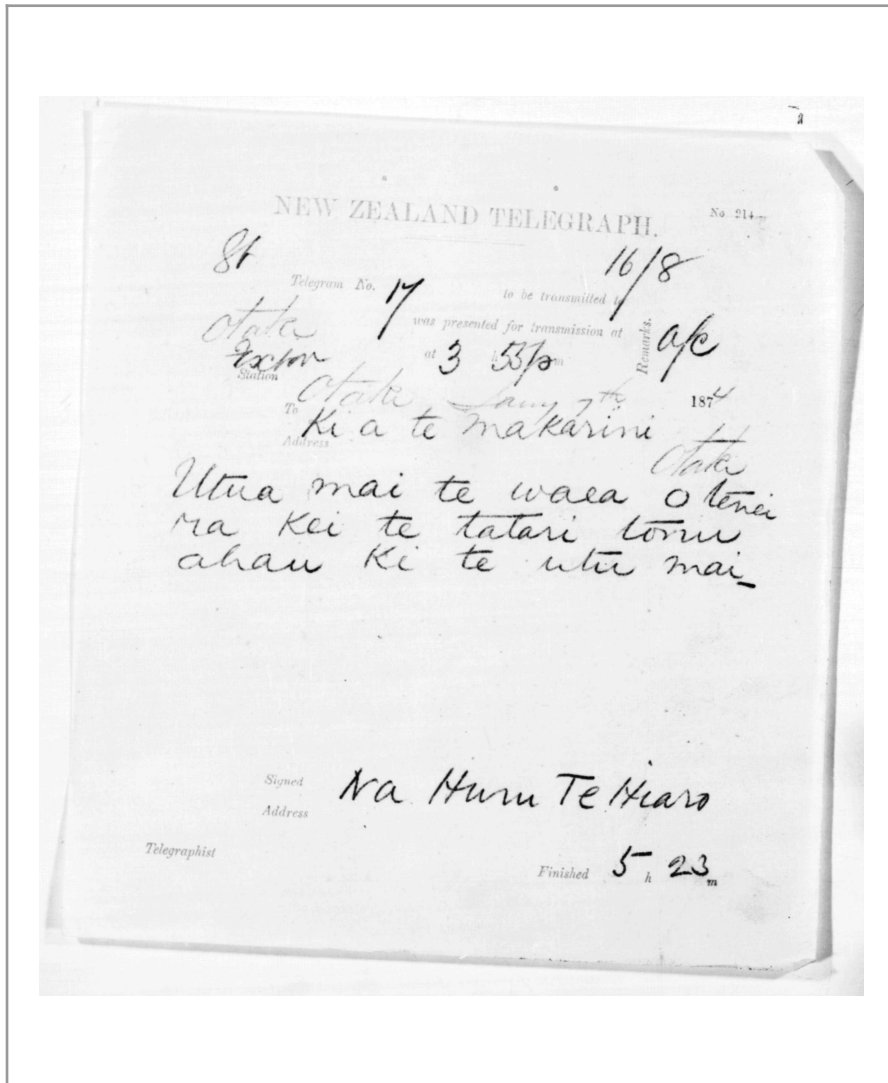 NEW ZEALAND TELEGRAPH.
No. 214
16/8
Telegram No. 17 to be transmitted to
Otaki was presented for transmission at
Remarks. a/c
Station at 3 h 53 p m
Otaki Jany 7th 1874
To Ki a te Makarini
Address
Otaki
Utua mai te waea o tenei
ra Kei te tatari tonu
ahau Ki te utu mai_
Signed Na Huru Te Hiaro
Address
Telegraphist
Finished 5 h 23 m